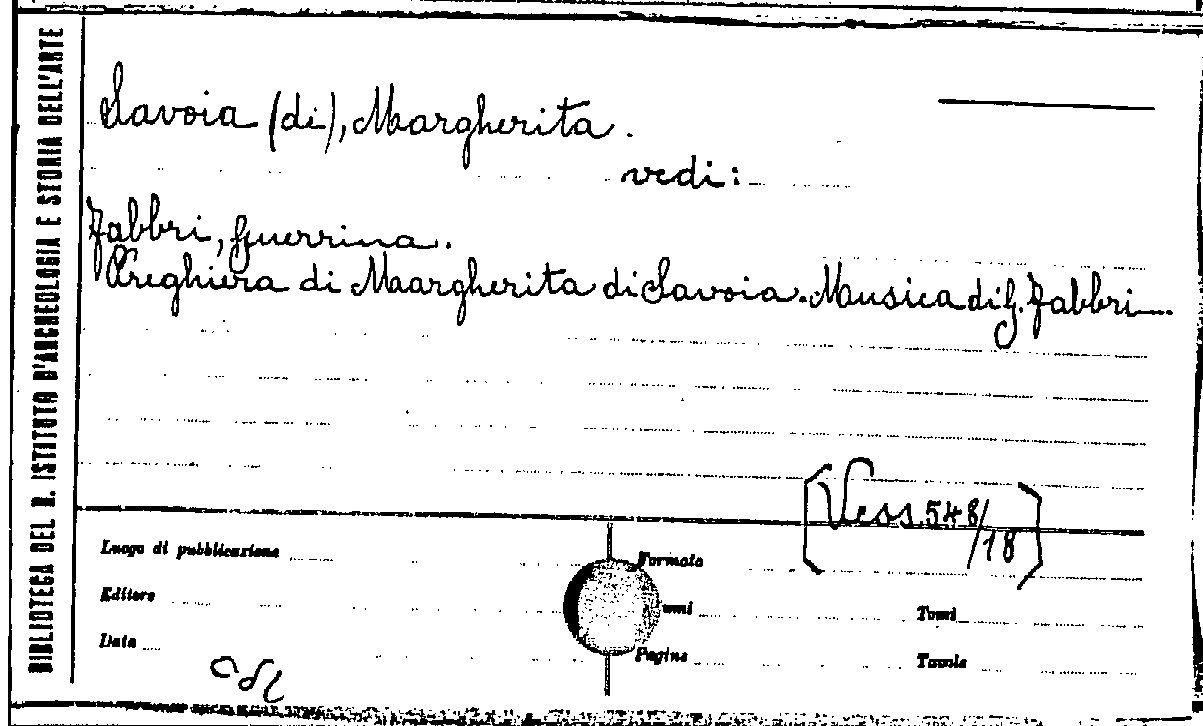 BIBLIOTECA DEL R. ISTITUTO D'ARCHEOLOGIA E STORIA DELL'ARTE
Savoia (di), Margherita.
vedi:
Fabbri, Guerrina.
Preghiera di Maargherita di Savoia. Musica di G. Fabbri
[Vess. 548/18]
Luogo di pubblicazione
Formato
Editore
Tomi
Data
Pagine
Tavole